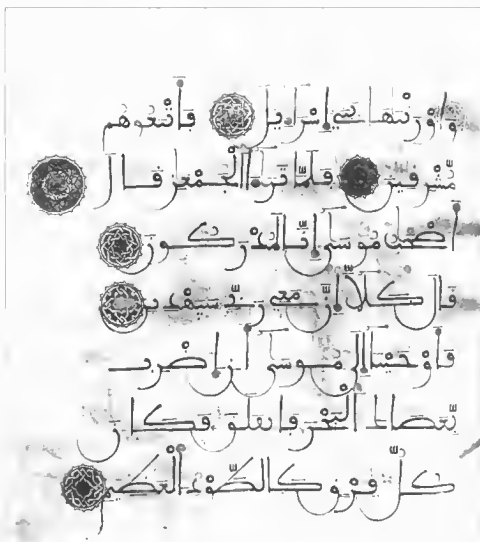 وَأَوْرَثْنَٰهَا بَنِىٓ إِسْرَٰٓءِيلَ فَأَتْبَعُوهُم
مُّشْرِقِينَ فَلَمَّا تَرَٰٓءَا ٱلْجَمْعَٰنِ قَالَ
أَصْحَٰبُ مُوسَىٰٓ إِنَّا لَمُدْرَكُونَ
قَالَ كَلَّآ إِنَّ مَعِىَ رَبِّى سَيَهْدِينِ
فَأَوْحَيْنَآ إِلَىٰ مُوسَىٰٓ أَنِ ٱضْرِب
بِّعَصَاكَ ٱلْبَحْرَ فَٱنفَلَقَ فَكَانَ
كُلُّ فِرْقٍ كَٱلطَّوْدِ ٱلْعَظِيمِ